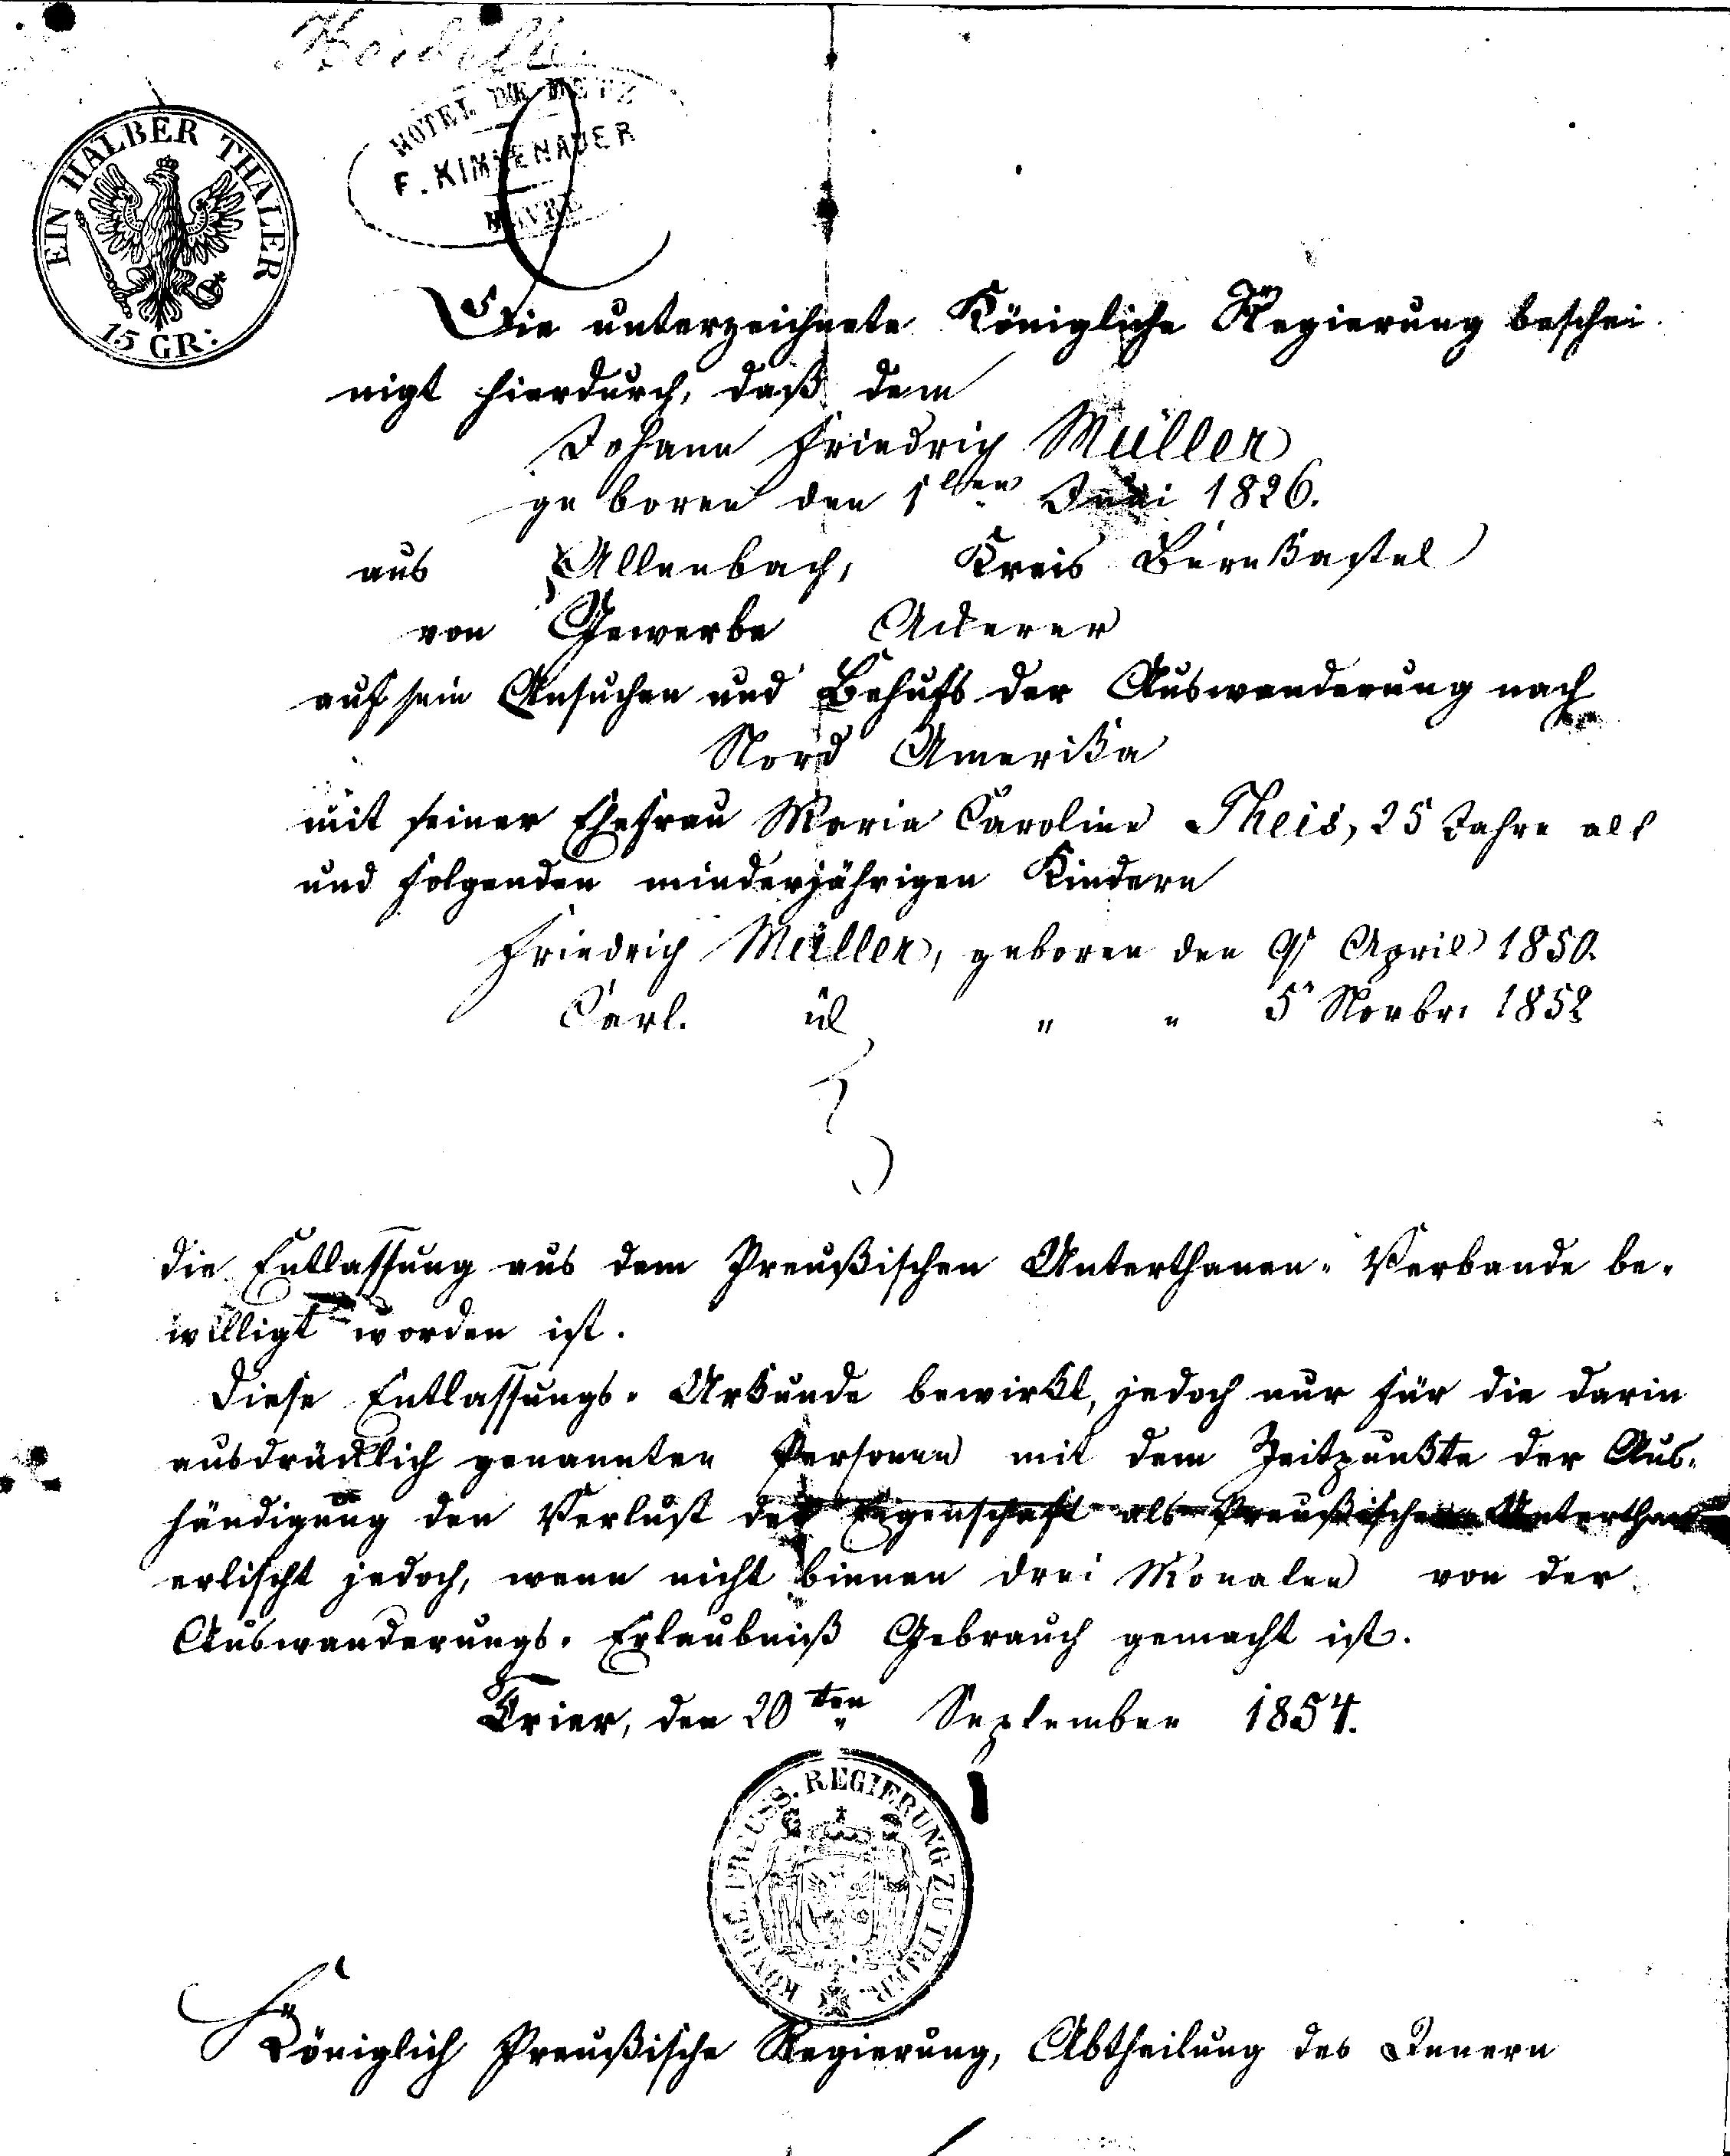 EIN HALBER THALER
15 GR:
HOTEL DE METZ
F. KIMMENAUER
HAVRE
Die unterzeichnete Königliche Regierung beschei
nigt hierdurch, daß dem
Johann Friedrich Müller
geboren den 1ten Juni 1826.
aus Allenbach, Kreis Bernkastel
von Gewerbe Ackerer
auf sein Ansuchen und Behufs der Auswanderung nach
Nord Amerika
mit seiner Ehefrau Maria Caroline Theis, 25 Jahre alt
und folgenden minderjährigen Kindern
Friedrich Müller, geboren den 9 April 1850.
Carl. id " " 5 Novbr: 1852
die Entlassung aus dem Preußischen Unterthanen-Verbande be-
willigt worden ist.
Diese Entlassungs-Urkunde bewirkt, jedoch nur für die darin
ausdrücklich genannten Personen mit dem Zeitpunkte der Aus-
händigung den Verlust der Eigenschaft als Preußische Unterthan
erlischt jedoch, wenn nicht binnen drei Monaten von der
Auswanderungs-Erlaubniß Gebrauch gemacht ist.
Trier, den 20ten September 1854.
KÖNIGL. PREUSS. REGIERUNG ZU TRIER.
Königlich Preußische Regierung, Abtheilung des Innern